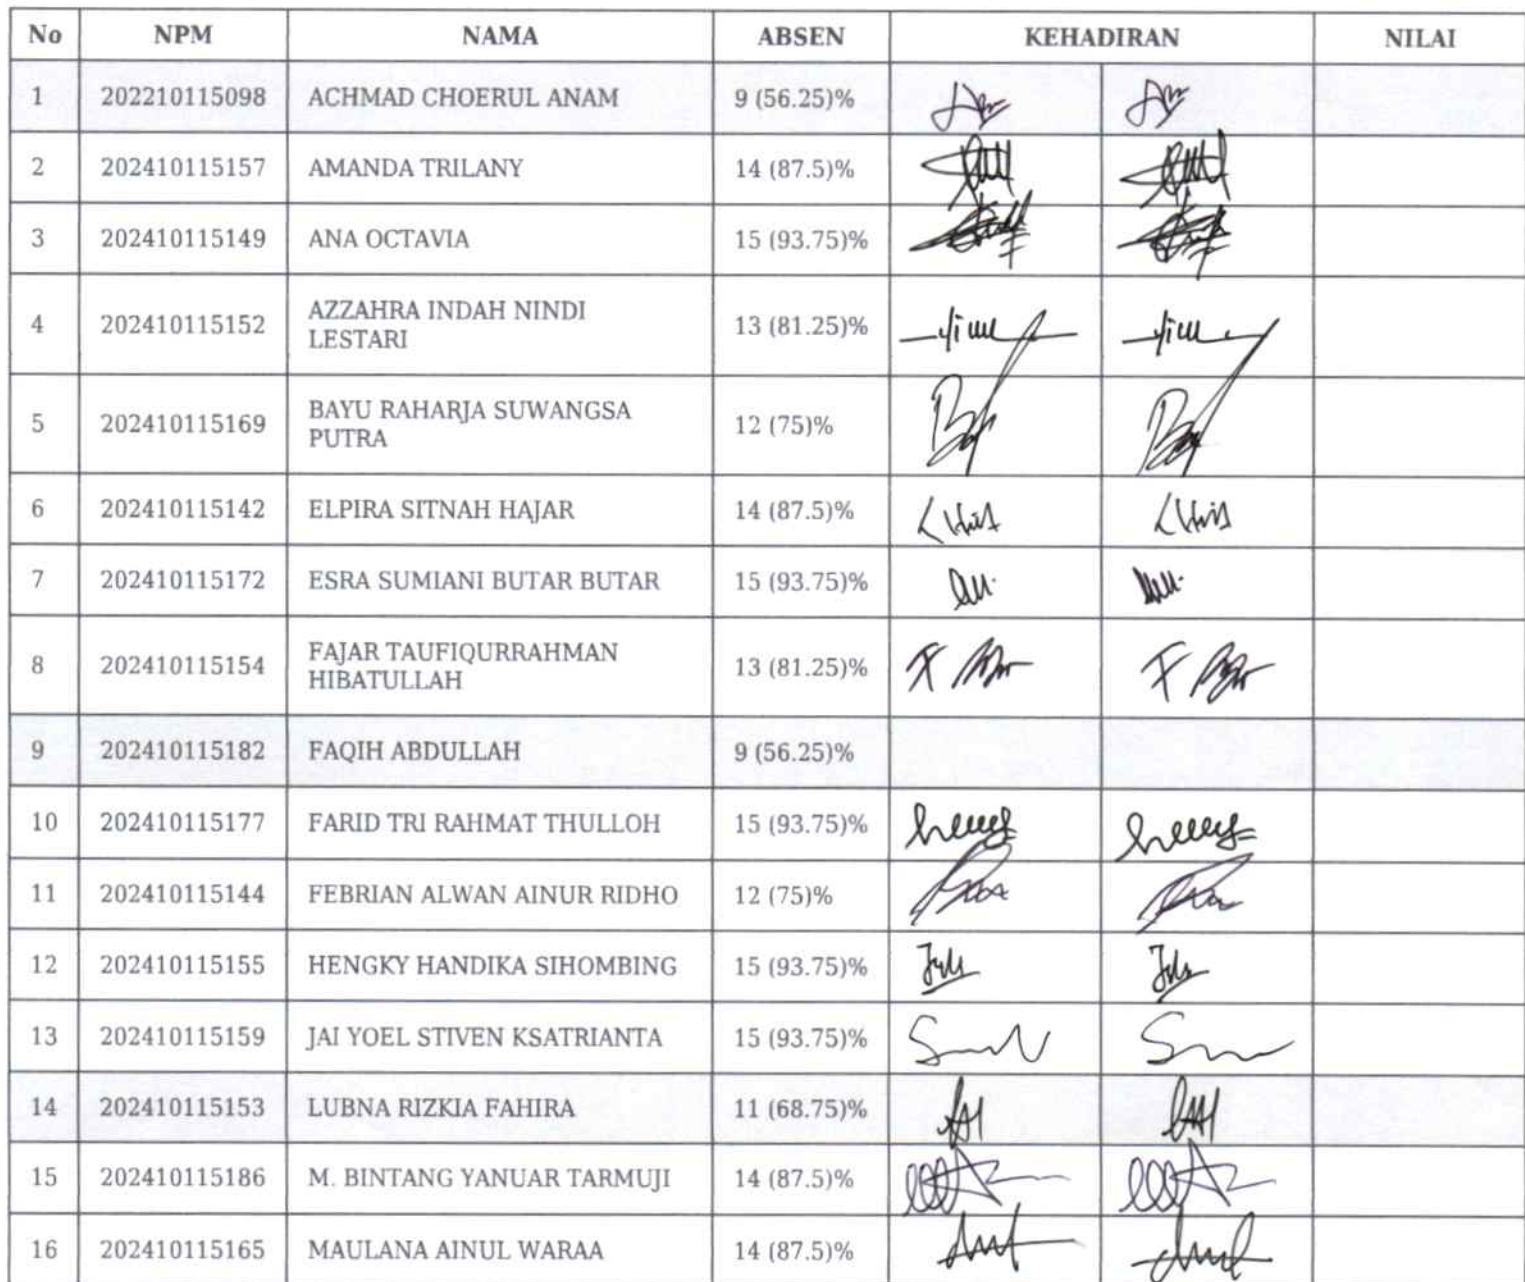 No NPM NAMA ABSEN KEHADIRAN NILAI
1 202210115098 ACHMAD CHOERUL ANAM 9 (56.25)%
2 202410115157 AMANDA TRILANY 14 (87.5)%
3 202410115149 ANA OCTAVIA 15 (93.75)%
4 202410115152 AZZAHRA INDAH NINDI
LESTARI 13 (81.25)%
5 202410115169 BAYU RAHARJA SUWANGSA
PUTRA 12 (75)%
6 202410115142 ELPIRA SITNAH HAJAR 14 (87.5)%
7 202410115172 ESRA SUMIANI BUTAR BUTAR 15 (93.75)%
8 202410115154 FAJAR TAUFIQURRAHMAN
HIBATULLAH 13 (81.25)%
9 202410115182 FAQIH ABDULLAH 9 (56.25)%
10 202410115177 FARID TRI RAHMAT THULLOH 15 (93.75)%
11 202410115144 FEBRIAN ALWAN AINUR RIDHO 12 (75)%
12 202410115155 HENGKY HANDIKA SIHOMBING 15 (93.75)%
13 202410115159 JAI YOEL STIVEN KSATRIANTA 15 (93.75)%
14 202410115153 LUBNA RIZKIA FAHIRA 11 (68.75)%
15 202410115186 M. BINTANG YANUAR TARMUJI 14 (87.5)%
16 202410115165 MAULANA AINUL WARAA 14 (87.5)%